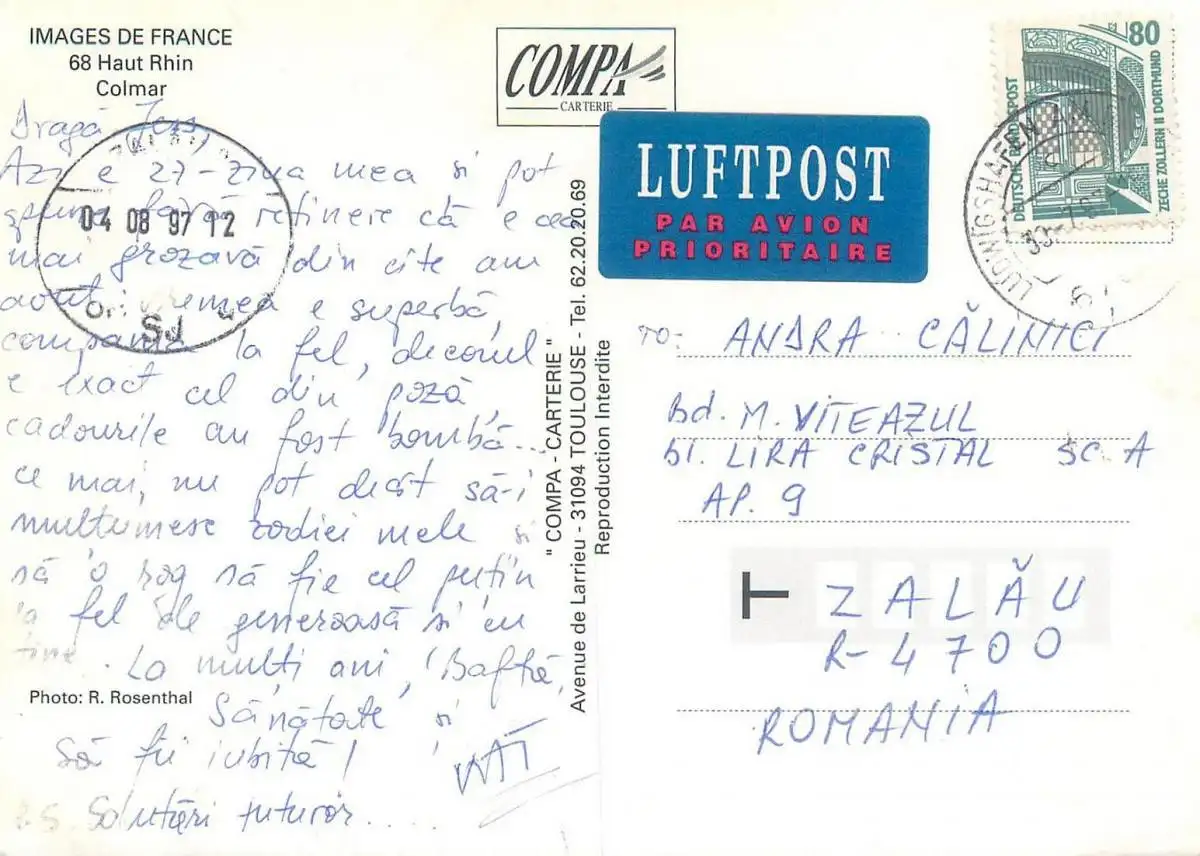 IMAGES DE FRANCE
68 Haut Rhin
Colmar
Dragă
Azi e 27-ziua mea si pot
spune fără reținere că e cea
mai grozavă din cite am
avut: vremea e superbă,
compania la fel, decorul
e exact cel din poză
cadourile au fost bombă...
ce mai, nu pot decit să-i
multumesc zodiei mele si
să o rog să fie cel puțin
la fel de generoasă si cu
tine. La mulți ani, Baftă,
Sănătate si
Să fii iubită!
P.S. Salutări tuturor.....
Photo: R. Rosenthal
04 08 97 12
SJ
COMPA
CARTERIE
" COMPA - CARTERIE "
Avenue de Larrieu - 31094 TOULOUSE - Tel. 62.20.20.69
Reproduction Interdite
LUFTPOST
PAR AVION
PRIORITAIRE
80
DEUTSCHE BUNDESPOST
ZECHE ZOLLERN II DORTMUND
LUDWIGSHAFEN AM
TO: ANDRA CĂLINICI
Bd. M. VITEAZUL
bl. LIRA CRISTAL SC. A
AP. 9
T ZALĂU
R-4700
ROMANIA